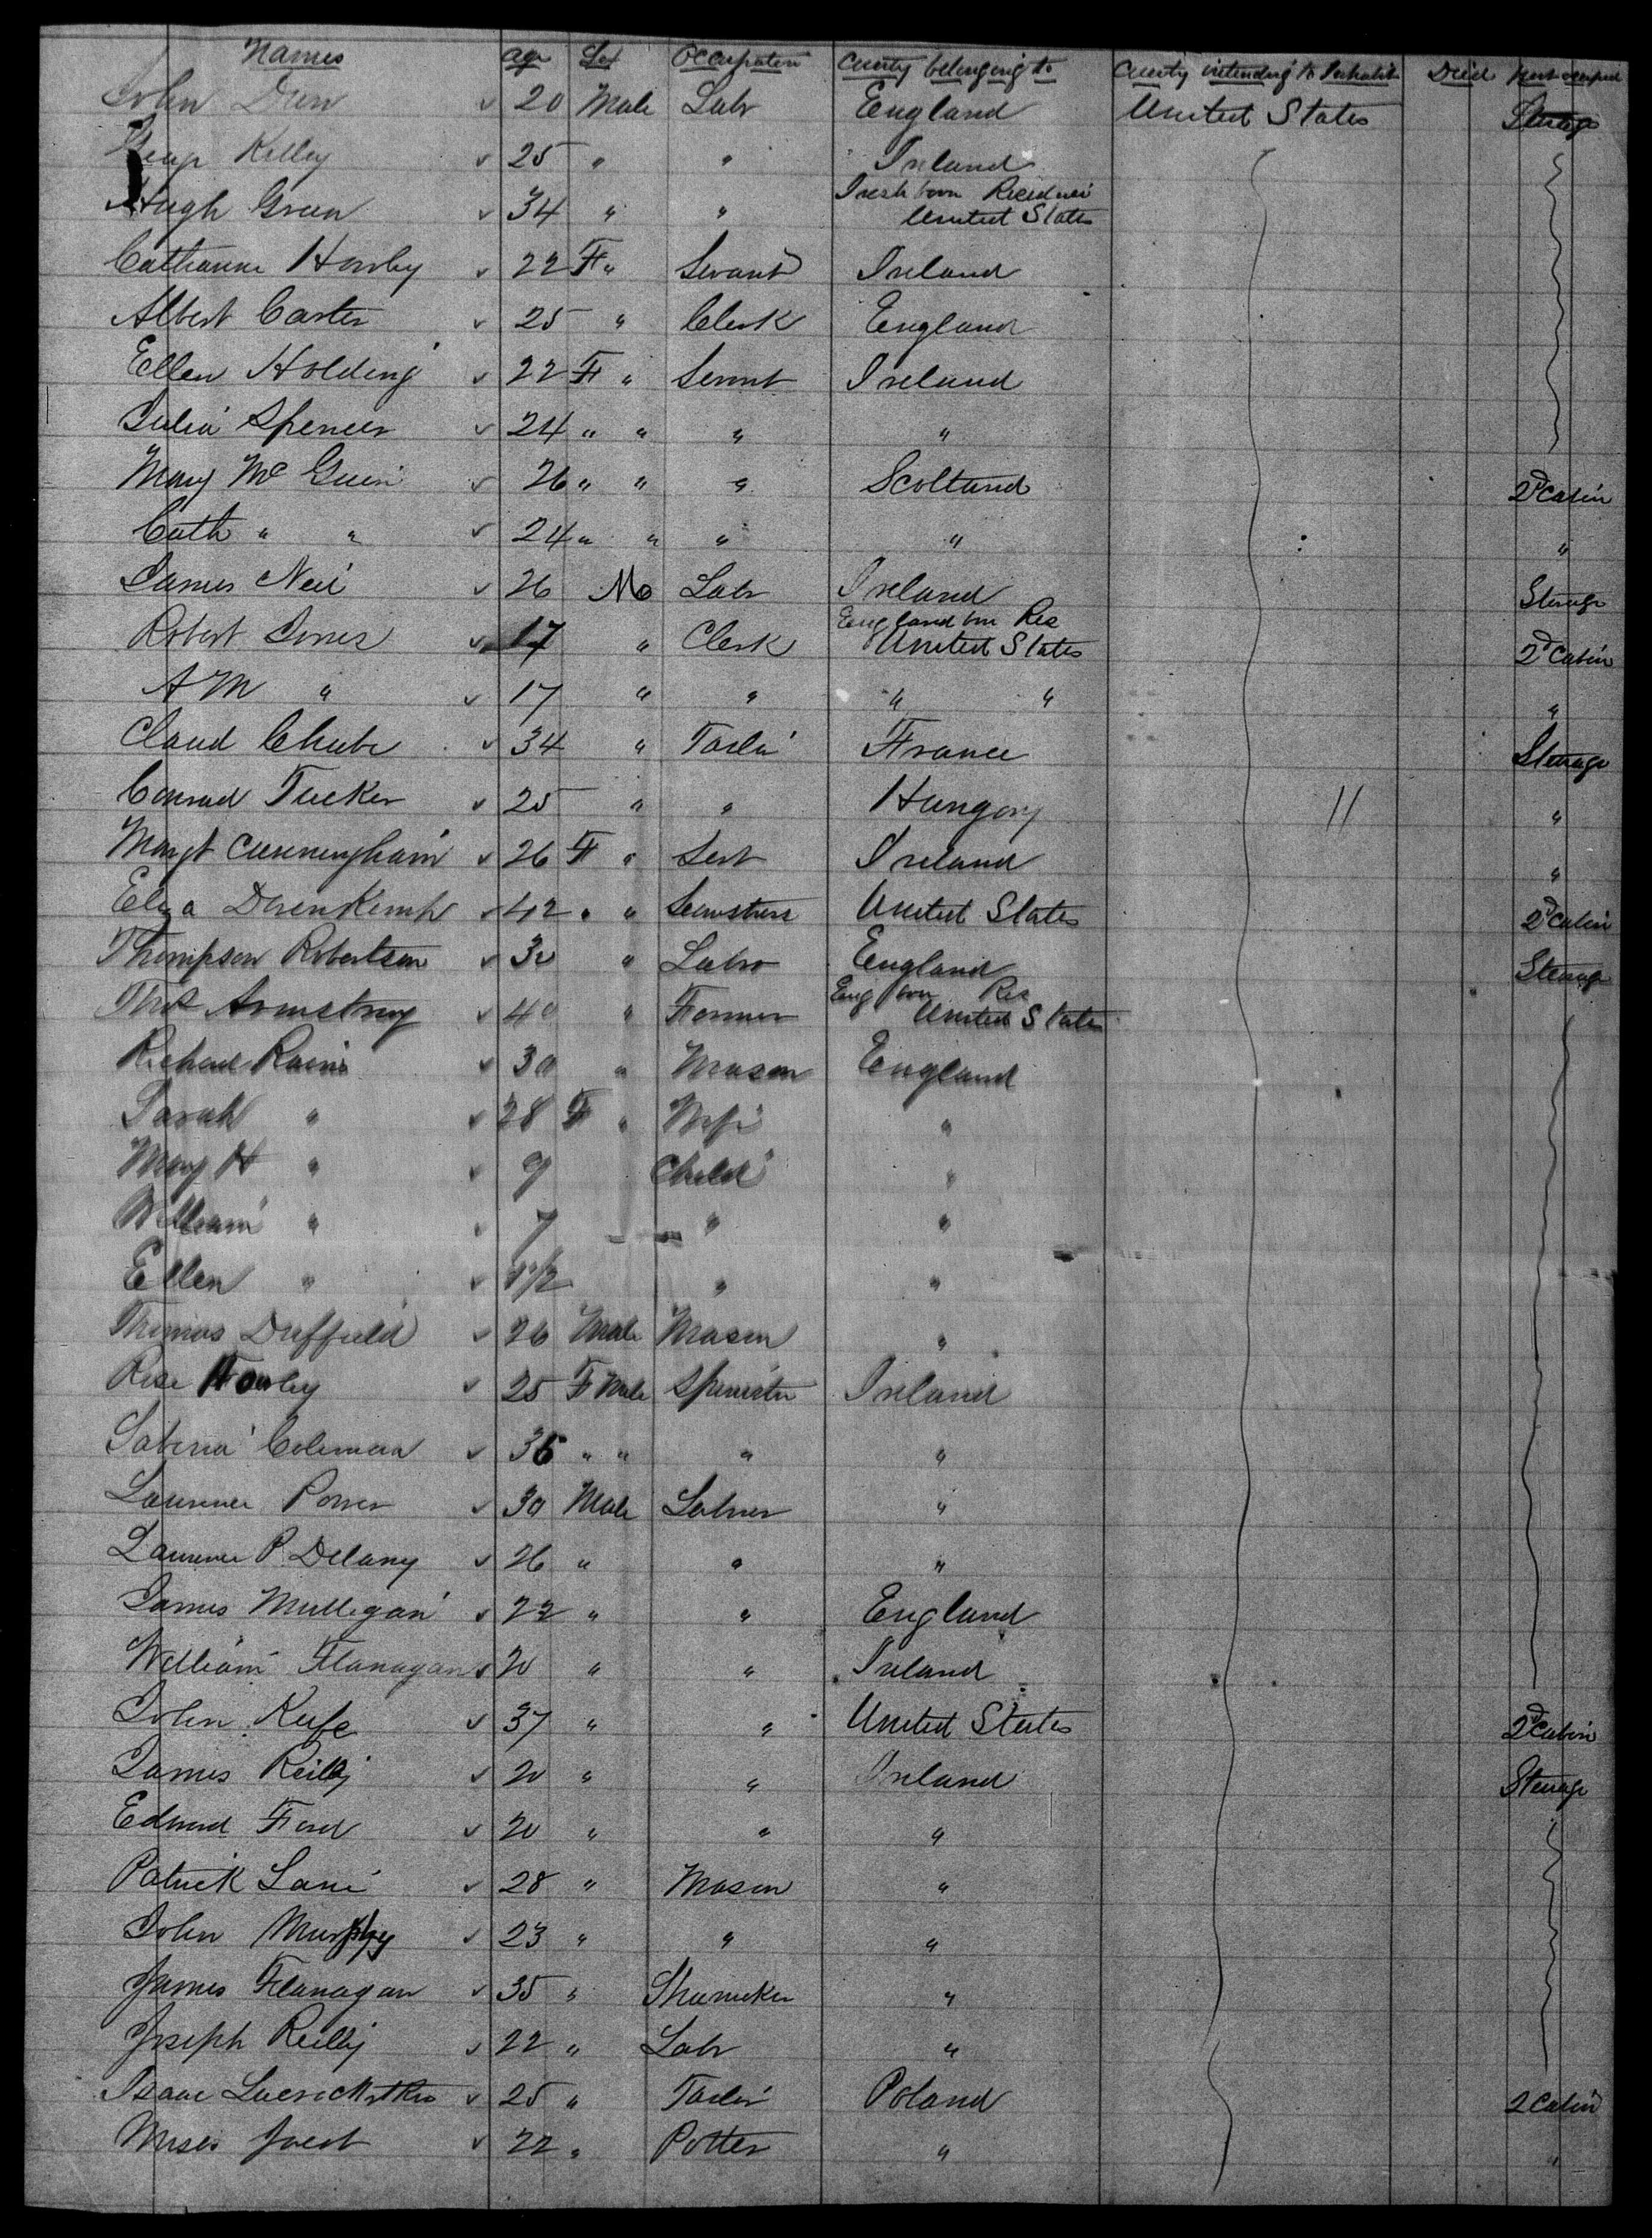 Names Age Sex Occupation County belonging to County intending to Inhabit Died Part occupied
John Dunn 20 Male Labr England United States Sterage
Kelley 25 " " Ireland
Irish born Residence
Hugh Green 34 " " United States
Catharine Hawley 22 F " Servant Ireland
Albert Carter 25 " Clerk England
Ellen Holding 22 F " Servnt Ireland
Julia Spencer 24 " " " "
Mary Mc Guin 26 " " " Scotland 2d Cabin
Cath " " 24 " " " " "
James Neil 26 M Labr Ireland Sterage
England bn Res
Robert Jones 17 " Clerk United States 2d Cabin
A M " 17 " " " " "
Claud Chube 34 " Tailor France Sterage
Conrad Tucker 25 " " Hungary "
Margt Cunningham 26 F " Sert Ireland "
Eliza Dorenkemp 42 " " Seamstress United States 2d Cabin
Thompson Robertson 30 " Labr England Sterage
Eng born Res
Thos Armstrong 40 " Farmer United States
Richard Rain 30 " Mason England
Sarah " 28 F " Wife "
Mary H " 9 Child "
William " 7 " "
Ellen " 1 1/2 " "
Thomas Duffield 26 Male Mason "
Rose Fowley 25 F Male Spinster Ireland
Sabina Coleman 36 " " " "
Laurence Power 30 Male Labrer "
Laurence P. Delany 26 " " "
James Mulligan 22 " " England
William Flanagan 20 " " Ireland
John Keefe 37 " " United States 2d Cabin
James Reilly 20 " " Ireland Sterage
Edward Ford 20 " " "
Patrick Lane 28 " Mason "
John Murphy 23 " " "
James Flanagan 35 " Shumeker "
Joseph Reilly 22 " Labr "
Isaac 25 " Tailor Poland 2 Cabin
Moses Jacob 22 " Potter " "